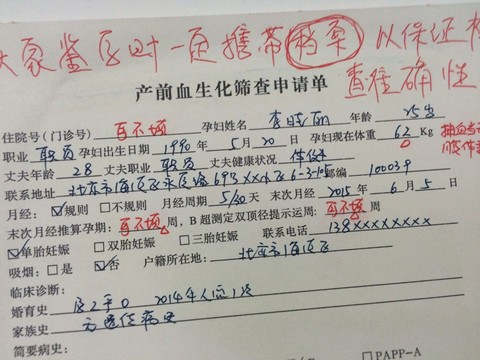 大家鉴字时一页携带档案以保证检
查准确性
产前血生化筛查申请单
住院号(门诊号) 可不填 孕妇姓名 李晓丽 年龄 25岁
职业 职员 孕妇出生日期 1990 年 5 月 20 日 孕妇现在体重 62 Kg
丈夫年龄 28 丈夫职业 职员 丈夫健康状况 体健
联系地址 北京市海淀区 邮编 100039
月经: ☑规则 □不规则 月经周期 5/30天 末次月经 2015 年 6 月 5 日
末次月经推算孕期: 可不填 周, B超测定双顶径提示运周: 可不填 周
☑单胎妊娠 □双胎妊娠 □三胎妊娠 联系电话 138xxxxxxxx
吸烟: □是 ☑否 户籍所在地: 北京市海淀区
临床诊断:
婚育史 孕2产0 2014年人流1次
家族史 无遗传病史
简要病史:
□PAPP-A